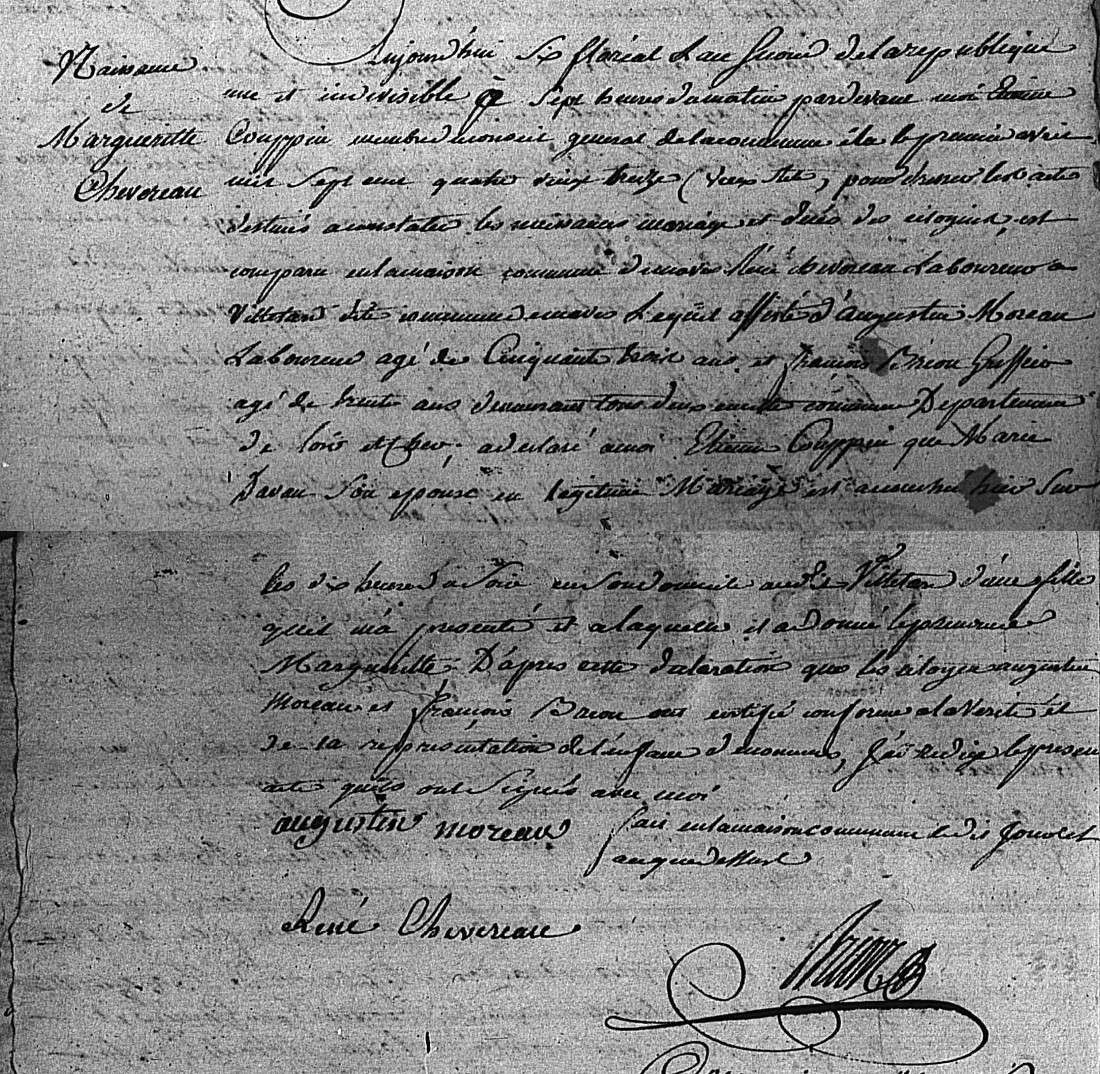 Naissance
de
Margueritte
Chevereau
Aujourd'hui Six floréal L'an Second de la republique
une et indivisible à Sept heures du matin pardevant moi Etienne
Couppin membre du conseil general de la commune élu le premier avril
mil Sept cent quatre vingt treize (vieux stile), pour dresser les actes
destinés a constater les naissances mariage et deces des citoyens, est
comparu en la maison commune René Chevereau Laboureur a
Villetan dite commune Lequel assisté d'Augustin Moreau
Laboureur agé de Cinquante trois ans et françois Brion Greffier
agé de trente ans demeurans tous deux commune Departement
de loir et Cher, a déclaré a moi Etienne Couppin que Marie
Davau Son epouse en legitime Mariage est accouchée hier Sur
les dix heures du Soir en Son domicile audit Villetan d'une fille
qu'il m'a présenté et a laquelle il a donné le prenom de
Margueritte D'après cette declaration que les citoyens augustin
Moreau et françois Brion ont certifié conforme a la Verité et
de la représentation de l'enfant denommé, J'ai redigé le present
acte qu'ils ont Signés avec moi
augustin moreau
fait en la maison commune lesdits Jour et
an que dessus
René Chevereau
Brion